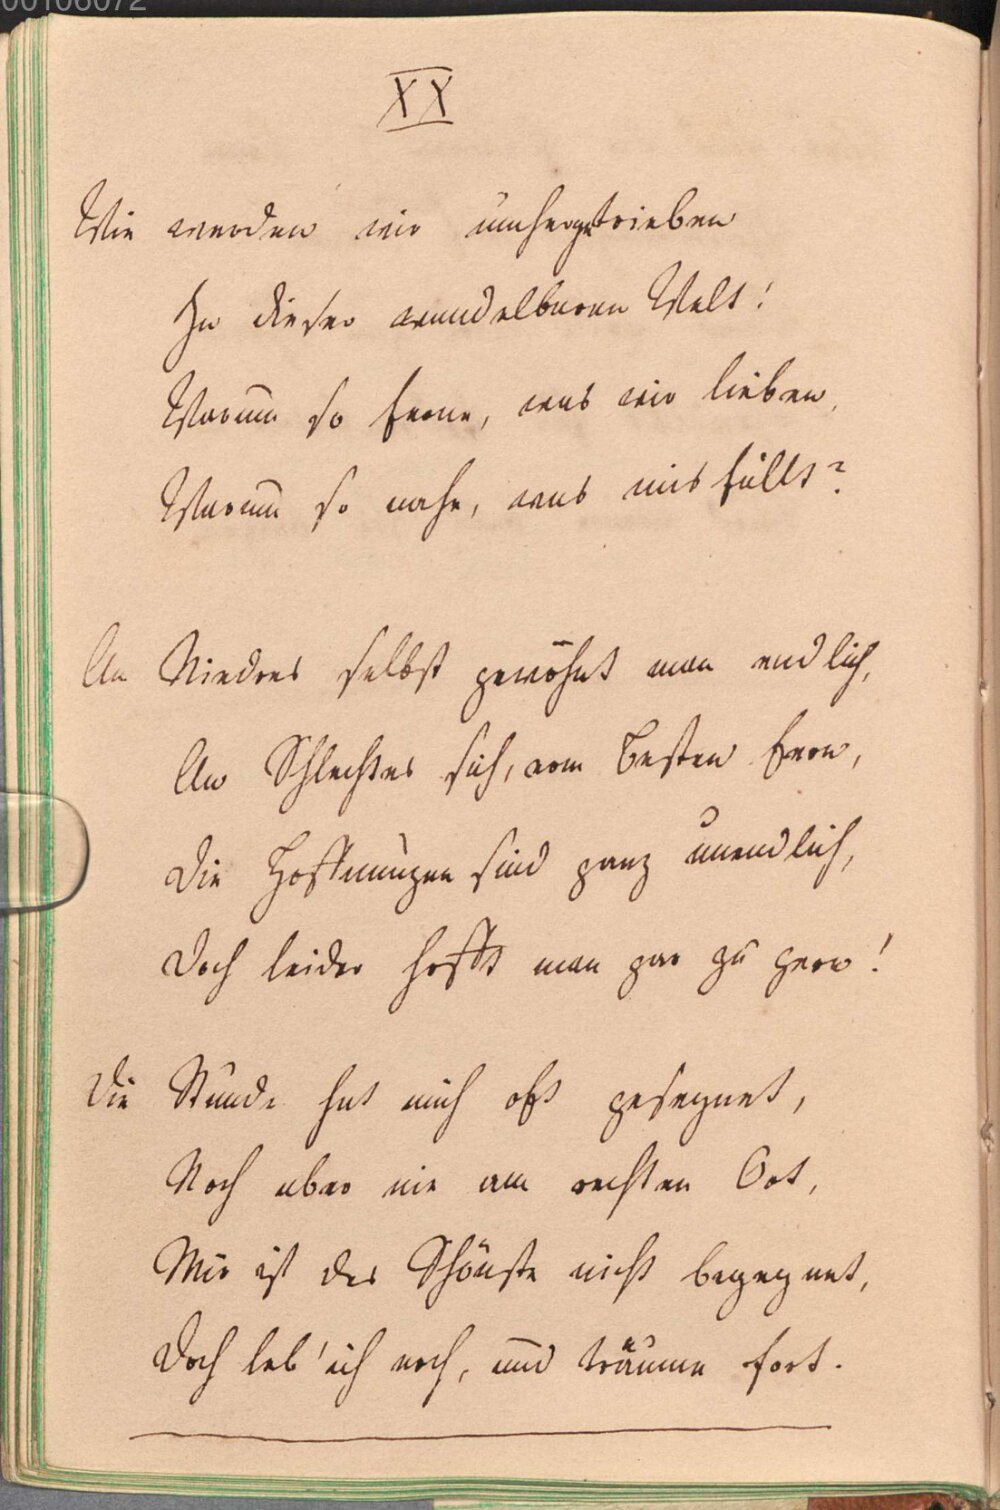 00106072
XX
Wie werden wir umhergetrieben
In dieser wandelbaren Welt!
Warum so ferne, was wir lieben,
Warum so nahe, was mis fällt?
An Niedres selbst gewöhnt man endlich,
An Schlechtes sich, vom Besten fern,
Die Hoffnungen sind ganz unendlich,
Doch leider hofft man gar zu gern!
Die Stunde hat mich oft gesegnet,
Noch aber nie am rechten Ort,
Mir ist das Schönste nicht begegnet,
Doch leb' ich noch, und träume fort.